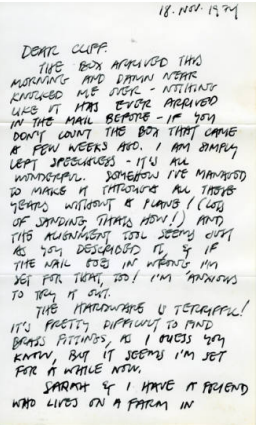 18. NOV. 1974
DEAR CLIFF.
THE BOX ARRIVED THIS
MORNING AND DAMN NEAR
KNOCKED ME OVER - NOTHING
LIKE IT HAS EVER ARRIVED
IN THE MAIL BEFORE - IF YOU
DON'T COUNT THE BOX THAT CAME
A FEW WEEKS AGO. I AM SIMPLY
LEFT SPEECHLESS - IT'S ALL
WONDERFUL. SOMEHOW I'VE MANAGED
TO MAKE IT THROUGH ALL THESE
YEARS WITHOUT A PLANE! (LOTS
OF SANDING THAT'S HOW!) AND
THE ALIGNMENT TOOL SEEMS JUST
AS YOU DESCRIBED IT, & IF
THE NAIL GOES IN WRONG I'M
SET FOR THAT, TOO! I'M ANXIOUS
TO TRY IT OUT.
THE HARDWARE IS TERRIFIC!
IT'S PRETTY DIFFICULT TO FIND
BRASS FITTINGS, AS I GUESS YOU
KNOW, BUT IT SEEMS I'M SET
FOR A WHILE NOW.
SARAH & I HAVE A FRIEND
WHO LIVES ON A FARM IN